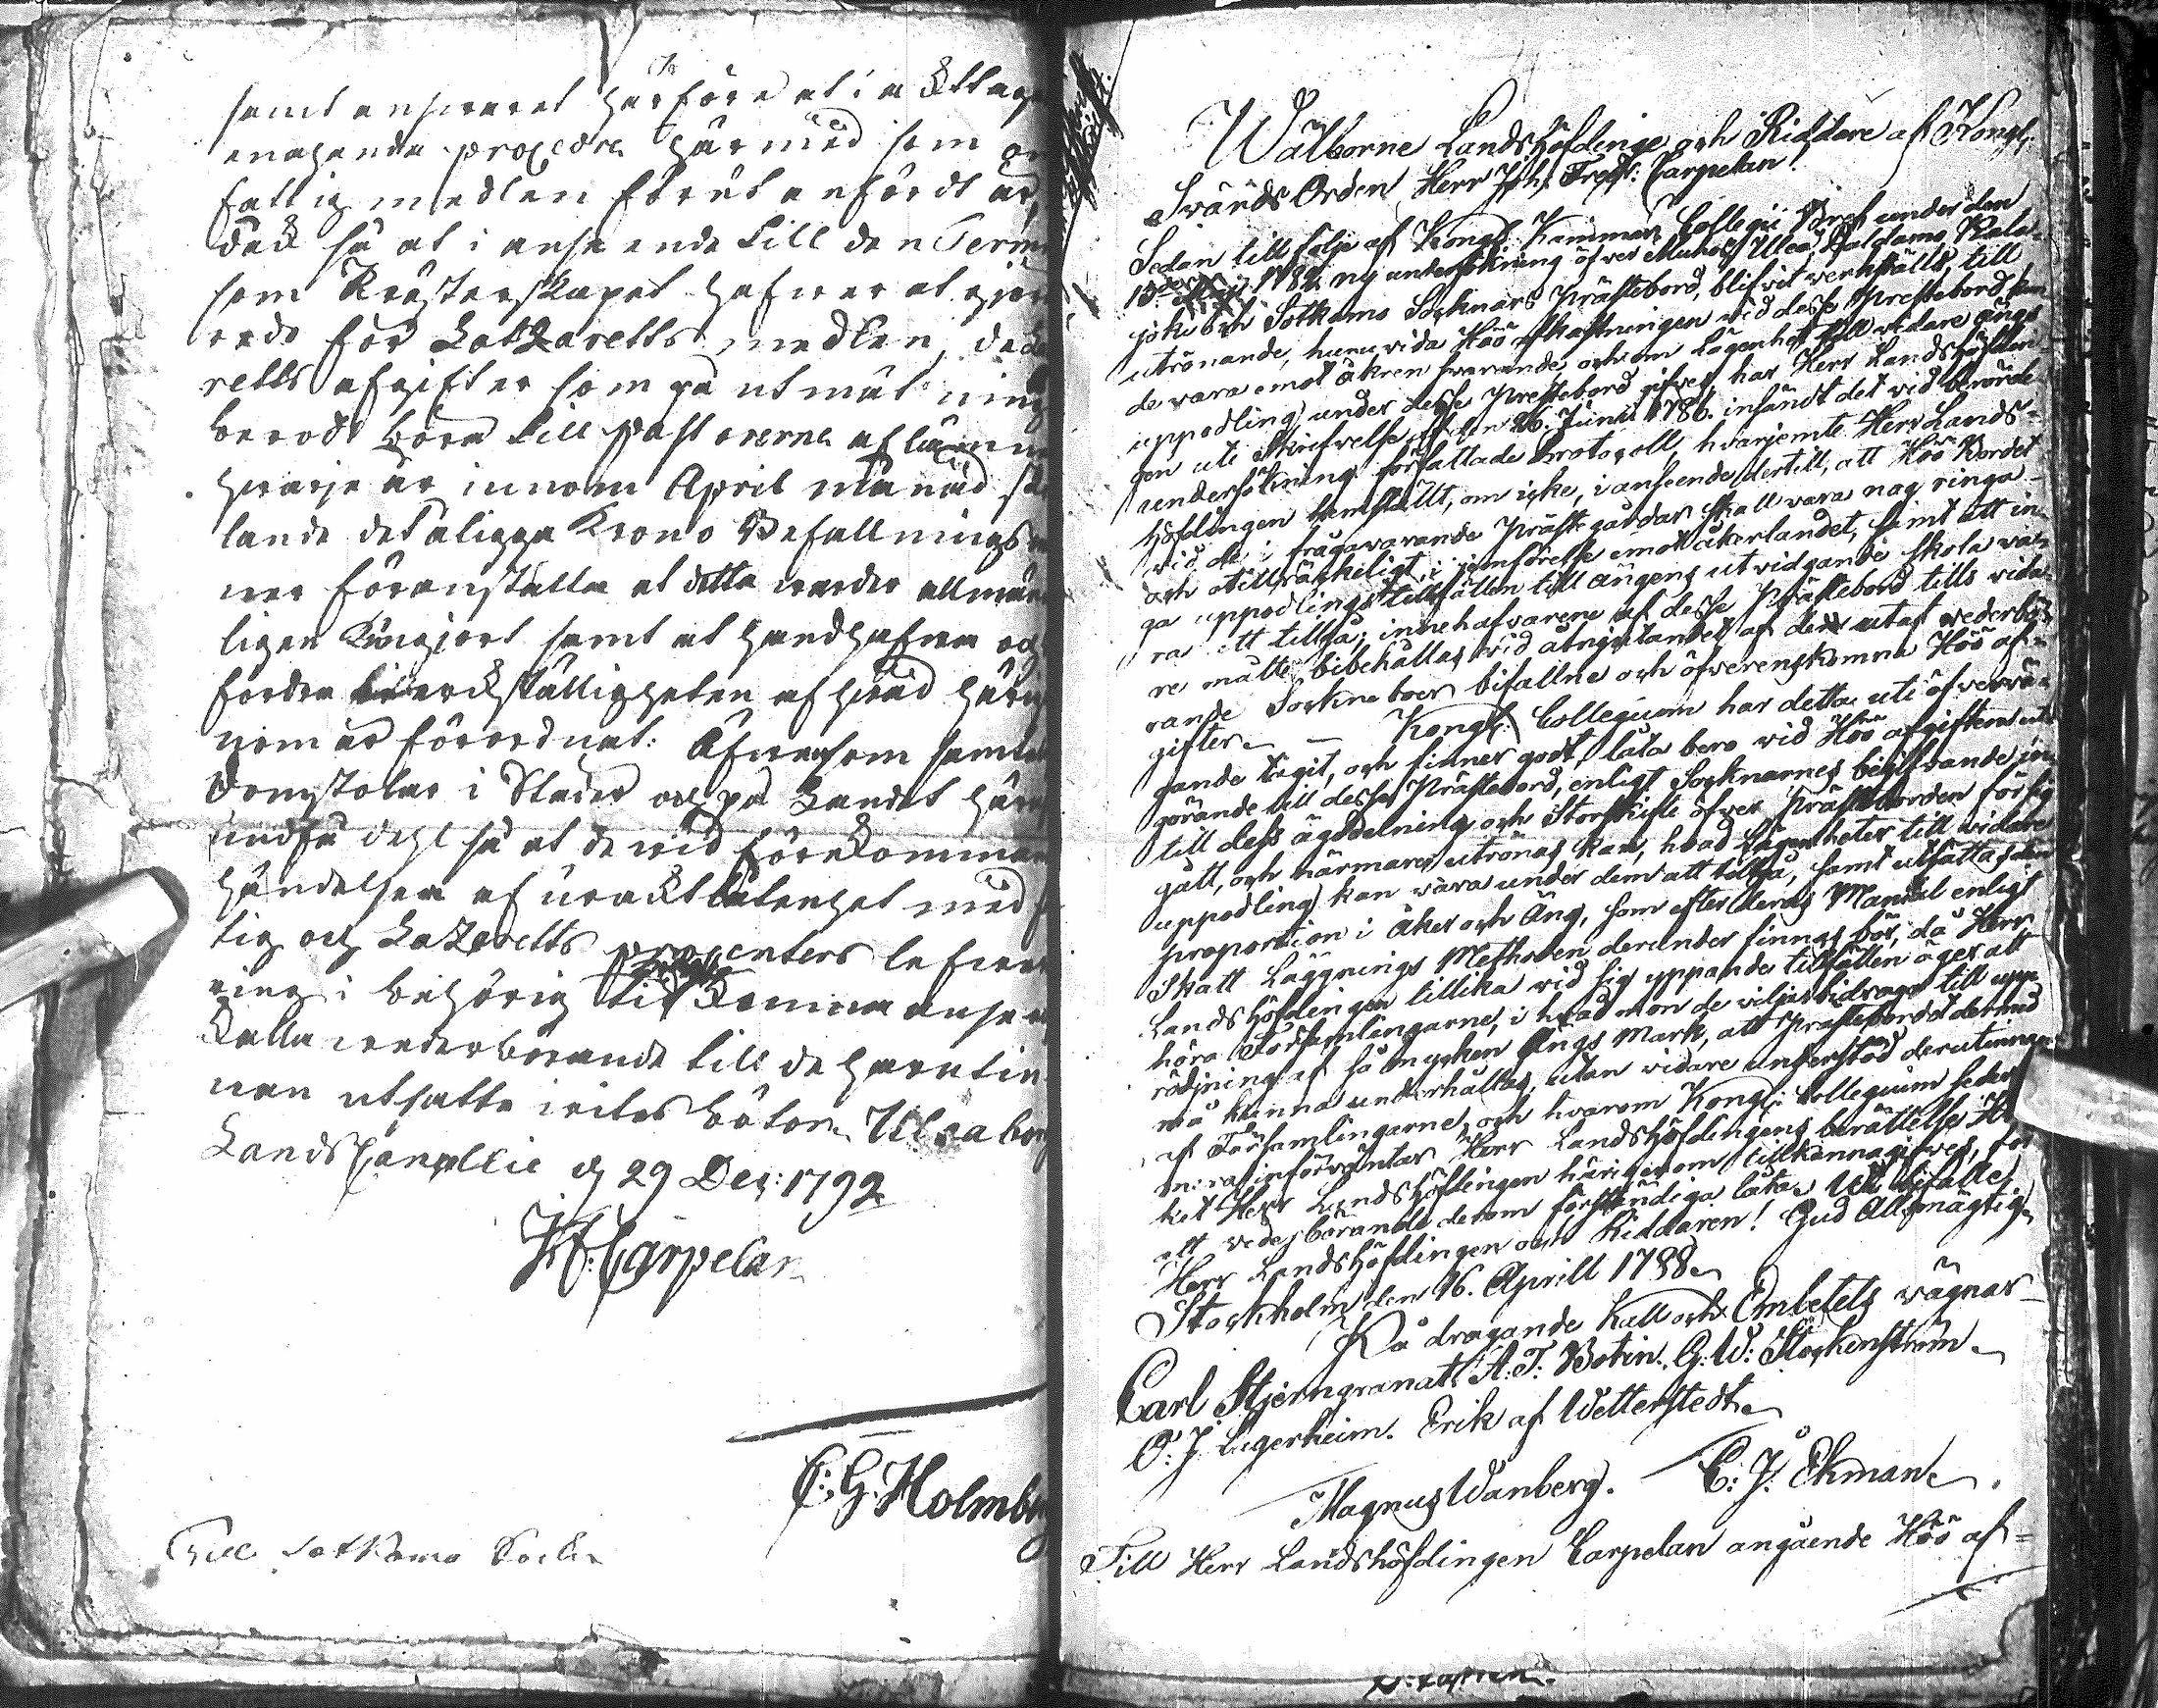 samt ansvaret härföre at i akttag
enahanda procedre härmed som om
fattig medlen förut anfördt är,
dock så at i anseende till den Termin
som Prästerskapet hafver at gjöra
redo för Latzaretts medlen, desse
retts afgifter som på utmätning
berodt böra till Pastorerne aflämnas
hvarje år innom April månad, sko
lande det åligga Krono Befallningsmän
ner föranstalta at detta warder allmän
ligen kungjort samt at handhafva och
fordra werckställigheten af hvad härige
nom är förordnat: Äfwensom samtel.
Domstolar i Städer och på Landet häraf
undfå dehl så at de wid förekommande
händelser af uracktlåtenhet med fat
tig och Lazeretts procenters lefwere
ring i behörig tid komma anse och
fälla wederbörande till de harutin
nan utsatte wites böter. Uleåborgs
Lands Cancellie d 29 Dec: 1792
J F: Carpelan
C: G: Holmbe
Till Sotkamo Sockn
Wälborne Landshöfdinge och Riddare af Kongl:
Svärds Orden, Herr Joh: Fredr: Carpelan!
Sedan till följe af Kongl: Kammar Collegii Bref under den
13:de 1782 ny undersökning öfver Muhos, Uleå, Paldamo, Kala-
joki och Sotkamo Socknars Prästebord, blifvit verkställd, till
utrönande, huruvida Höö afkastningen vid desse Prestebord kun
de vara emot åkren svarande, och om Lägenhet till vidare ängs
uppodling under desse Prestebord gifves; har Herr Landshöfdin
gen uti Skrifvelse af den 26. Junii 1786. insändt det vid berörde
undersökning författade Protocoll, hvarjemte Herr Lands-
höfdingen hemställt, om icke, i anseende dertill, att Höö Bordet
vid de i frågavarande Prästegårdar skall vara nog ringa
och otillräckeligt, i jemförelse emot åkerlandet, samt att in
ga uppodlings tillfällen till ängens utvidgande skola va-
ra att tillgå; innehafvarene af desse Prästebord tills vida
re måtte bibehållas vid åtnjutandet af den utaf vederbö-
rande Sockneboer bifallne och öfverenskomna Höö af-
gifter. — Kongl: Collegium har detta uti öfvervä-
gande tagit, och finner godt låta bero vid Höö afgiftens ut
görande till desse Prästebord, enligt Socknarnes
till dess ägodelning och Storskifte öfver Prästeborden för sig
gått, och närmare utrönas kan, hvad Lägenheter till vidare
uppodling kan vara under dem att tillgå, samt utsättas den
proportion i åker och Äng, som efter deras Mantal enligt
Skatt Läggnings Methoden derunder finnas bör, då Herr
Landshöfdingen tillika vid sig yppande tillfällen äger att
höra Församlingarne, i hvad mon de vilja bidraga till upp
rödjning af så mycken Ängs Mark, att Prästebordet dermed
må kunna underhållas, utan vidare understöd derutinnan
af Församlingarne, och hvarom Kongl: Collegium sedan
mera införväntar Herr Landshöfdingens berättelse
ket Herr Landshöfdingen härigenom tillkännagifves, för
att vederbörande derom förständiga låta. Vi befalle
Herr Landshöfdingen och Riddaren! Gud Allsmägtig.
Stockholm den 16. Aprill 1788.
På dragande Kall och Embetets vägnar
Carl Stjerngranat A. F: Botin. G: W: Stockenström.
O: J Lagerheim. Erik af Wetterstedt.
Magnus Wanberg. C: J: Ekman.
Till Herr Landshöfdingen Carpelan angående Höö af=